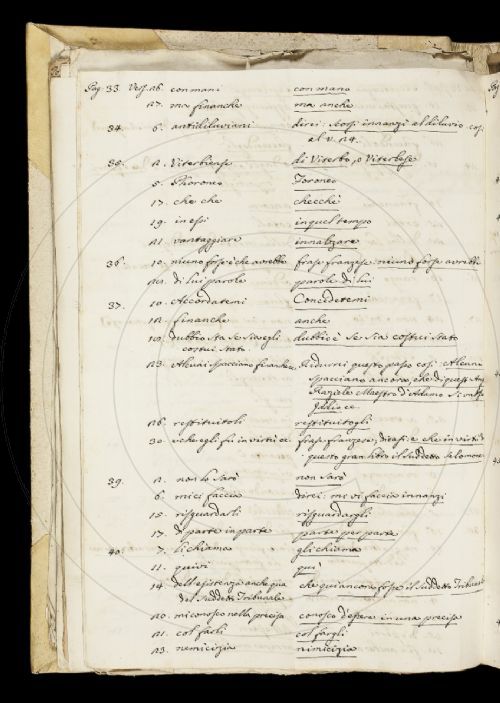 Pag. 33. Vers. 26. con mani con mano
27. ma finanche ma anche
34. 6. antidiluviani direi: scorsi innanzi al diluvio così
al v. 24.
35. 2. Viterbiense di Viterbo, o Viterbese
5. Phoroneo Foroneo
17. che che checchè
19. in essi in quel tempo
21. vantaggiare innalzare
36. 10. niuno forse è che avrebbe frase franzese: niuno forse avrebbe
22. di lui parole parole di lui
37. 10. Accordatemi Concedetemi
12. finanche anche
19. dubbio sta se sia egli dubbio è se sia costui stato
costui stato
23. Alcuni spacciano finanche Ridurrei questo passo così: Alcuni
spacciano ancora, che di quest'
Raziele Maestro d'Adamo si
26. restituitoli restituitogli
30. che egli fu in virtù frase franzese; dicasi: e che in virtù
questo gran libro il suddetto Salomone
39. 2. non lo sarò non sarò
6. mi ci faccia direi: mi vi faccia innanzi
15. risguardarli risguardargli
17. di parte in parte parte per parte
40. 7. li chiama gli chiama
11. quivi qui
14. dell'esistenza anche qua che qui ancora fosse il suddetto Tribunale
del suddetto Tribunale
20. mi conosco nella precisa conosco d'essere in una precisa
21. col farli col fargli
23. nemicizia nimicizia